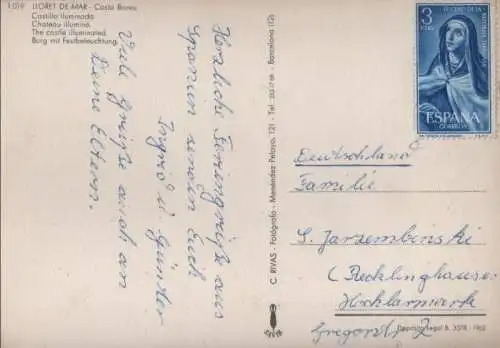 1.019 LLORET DE MAR - Costa Brava
Castillo iluminado
Chateau illuminé.
The castle illuminated.
Burg mit Festbeleuchtung.
Herzliche Feriengrüße aus
Spanien senden Euch
Ingrid u. Günter
Viele Grüße auch an
Deine Eltern.
C. RIVAS - Fotógrafo - Menéndez Pelayo, 121 - Tel. - Barcelona (12)
3
PTAS
ESPAÑA
CORREOS
Deutschland
Familie
S. Jarzembinski
(Recklinghausen
Hochlarmark
Gregorstr. 2
Depósito Legal B. 3578 - 1962